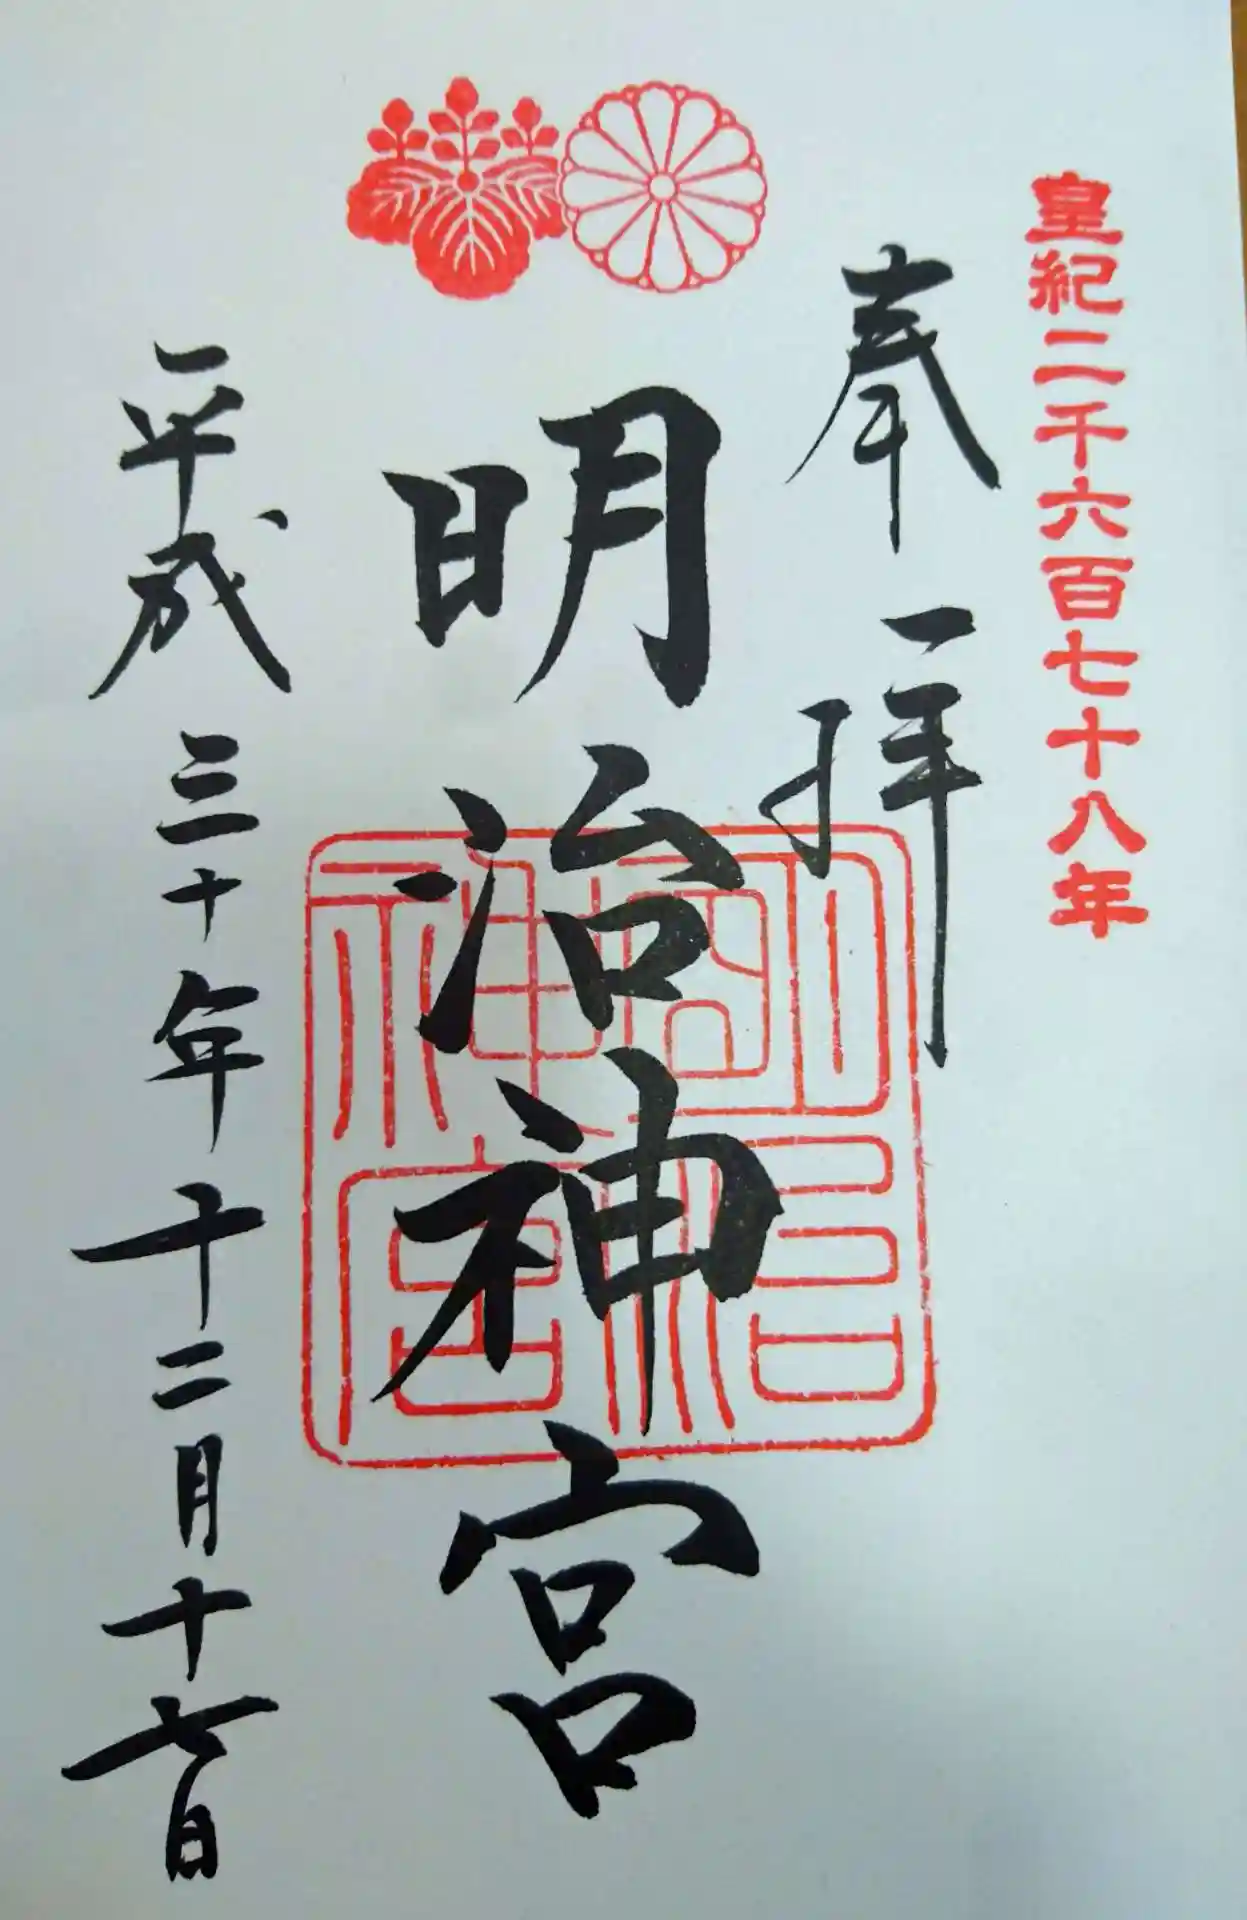 皇紀二千六百七十八年
奉拝
明治神宮
明治神宮
平成三十年十二月十七日